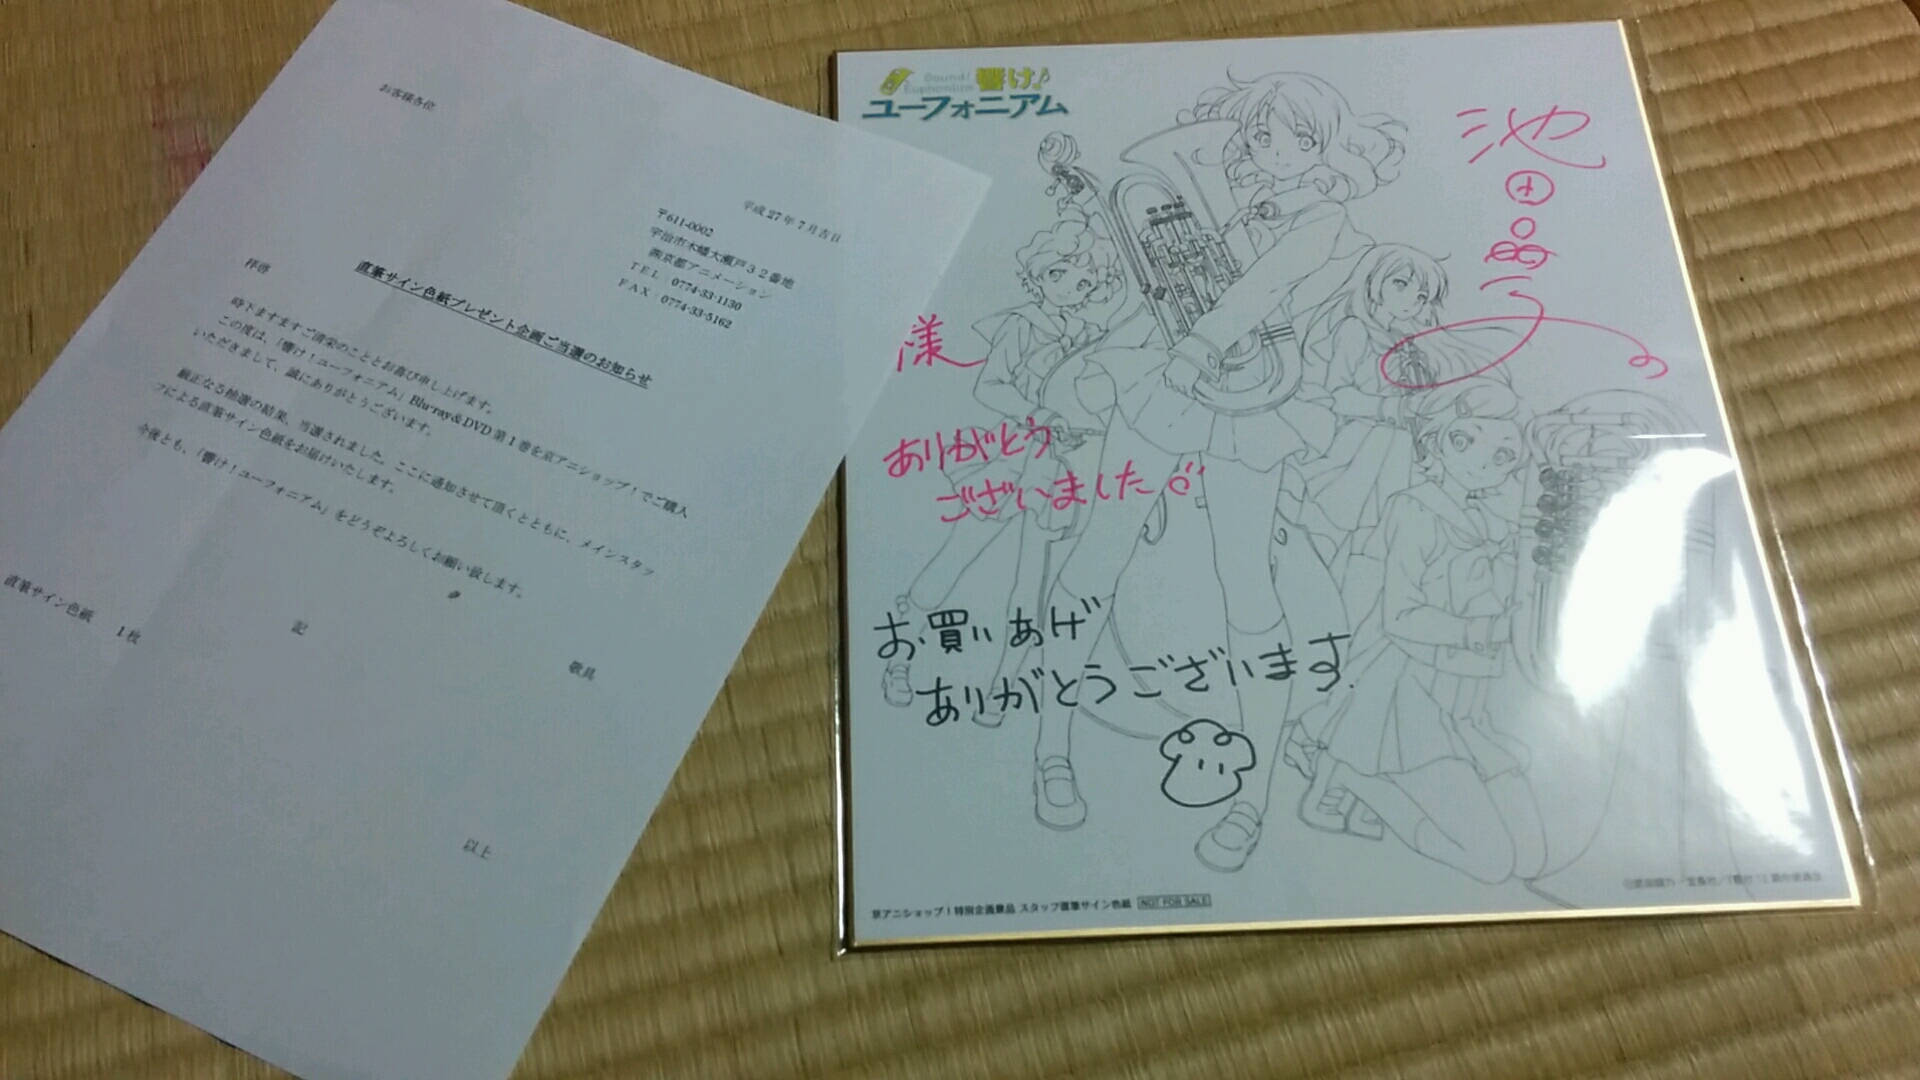 お客様各位
平成27年7月吉日
〒611-0002
宇治市木幡大瀬戸32番地
㈱京都アニメーション
TEL 0774-33-1130
FAX 0774-33-5162
直筆サイン色紙プレゼント企画ご当選のお知らせ
拝啓
時下ますますご清栄のこととお喜び申し上げます。
この度は、「響け！ユーフォニアム」Blu-ray&DVD第1巻を京アニショップ！でご購入
いただきまして、誠にありがとうございます。
厳正なる抽選の結果、当選されました。ここに通知させて頂くとともに、メインスタッ
フによる直筆サイン色紙をお届けいたします。
今後とも、「響け！ユーフォニアム」をどうぞよろしくお願い致します。
敬具
記
直筆サイン色紙 1枚
以上
Sound!
Euphonium
響け♪
ユーフォニアム
池田晶子
様
ありがとう
ございました
お買いあげ
ありがとうございます.
京アニショップ！特別企画景品 スタッフ直筆サイン色紙 NOT FOR SALE